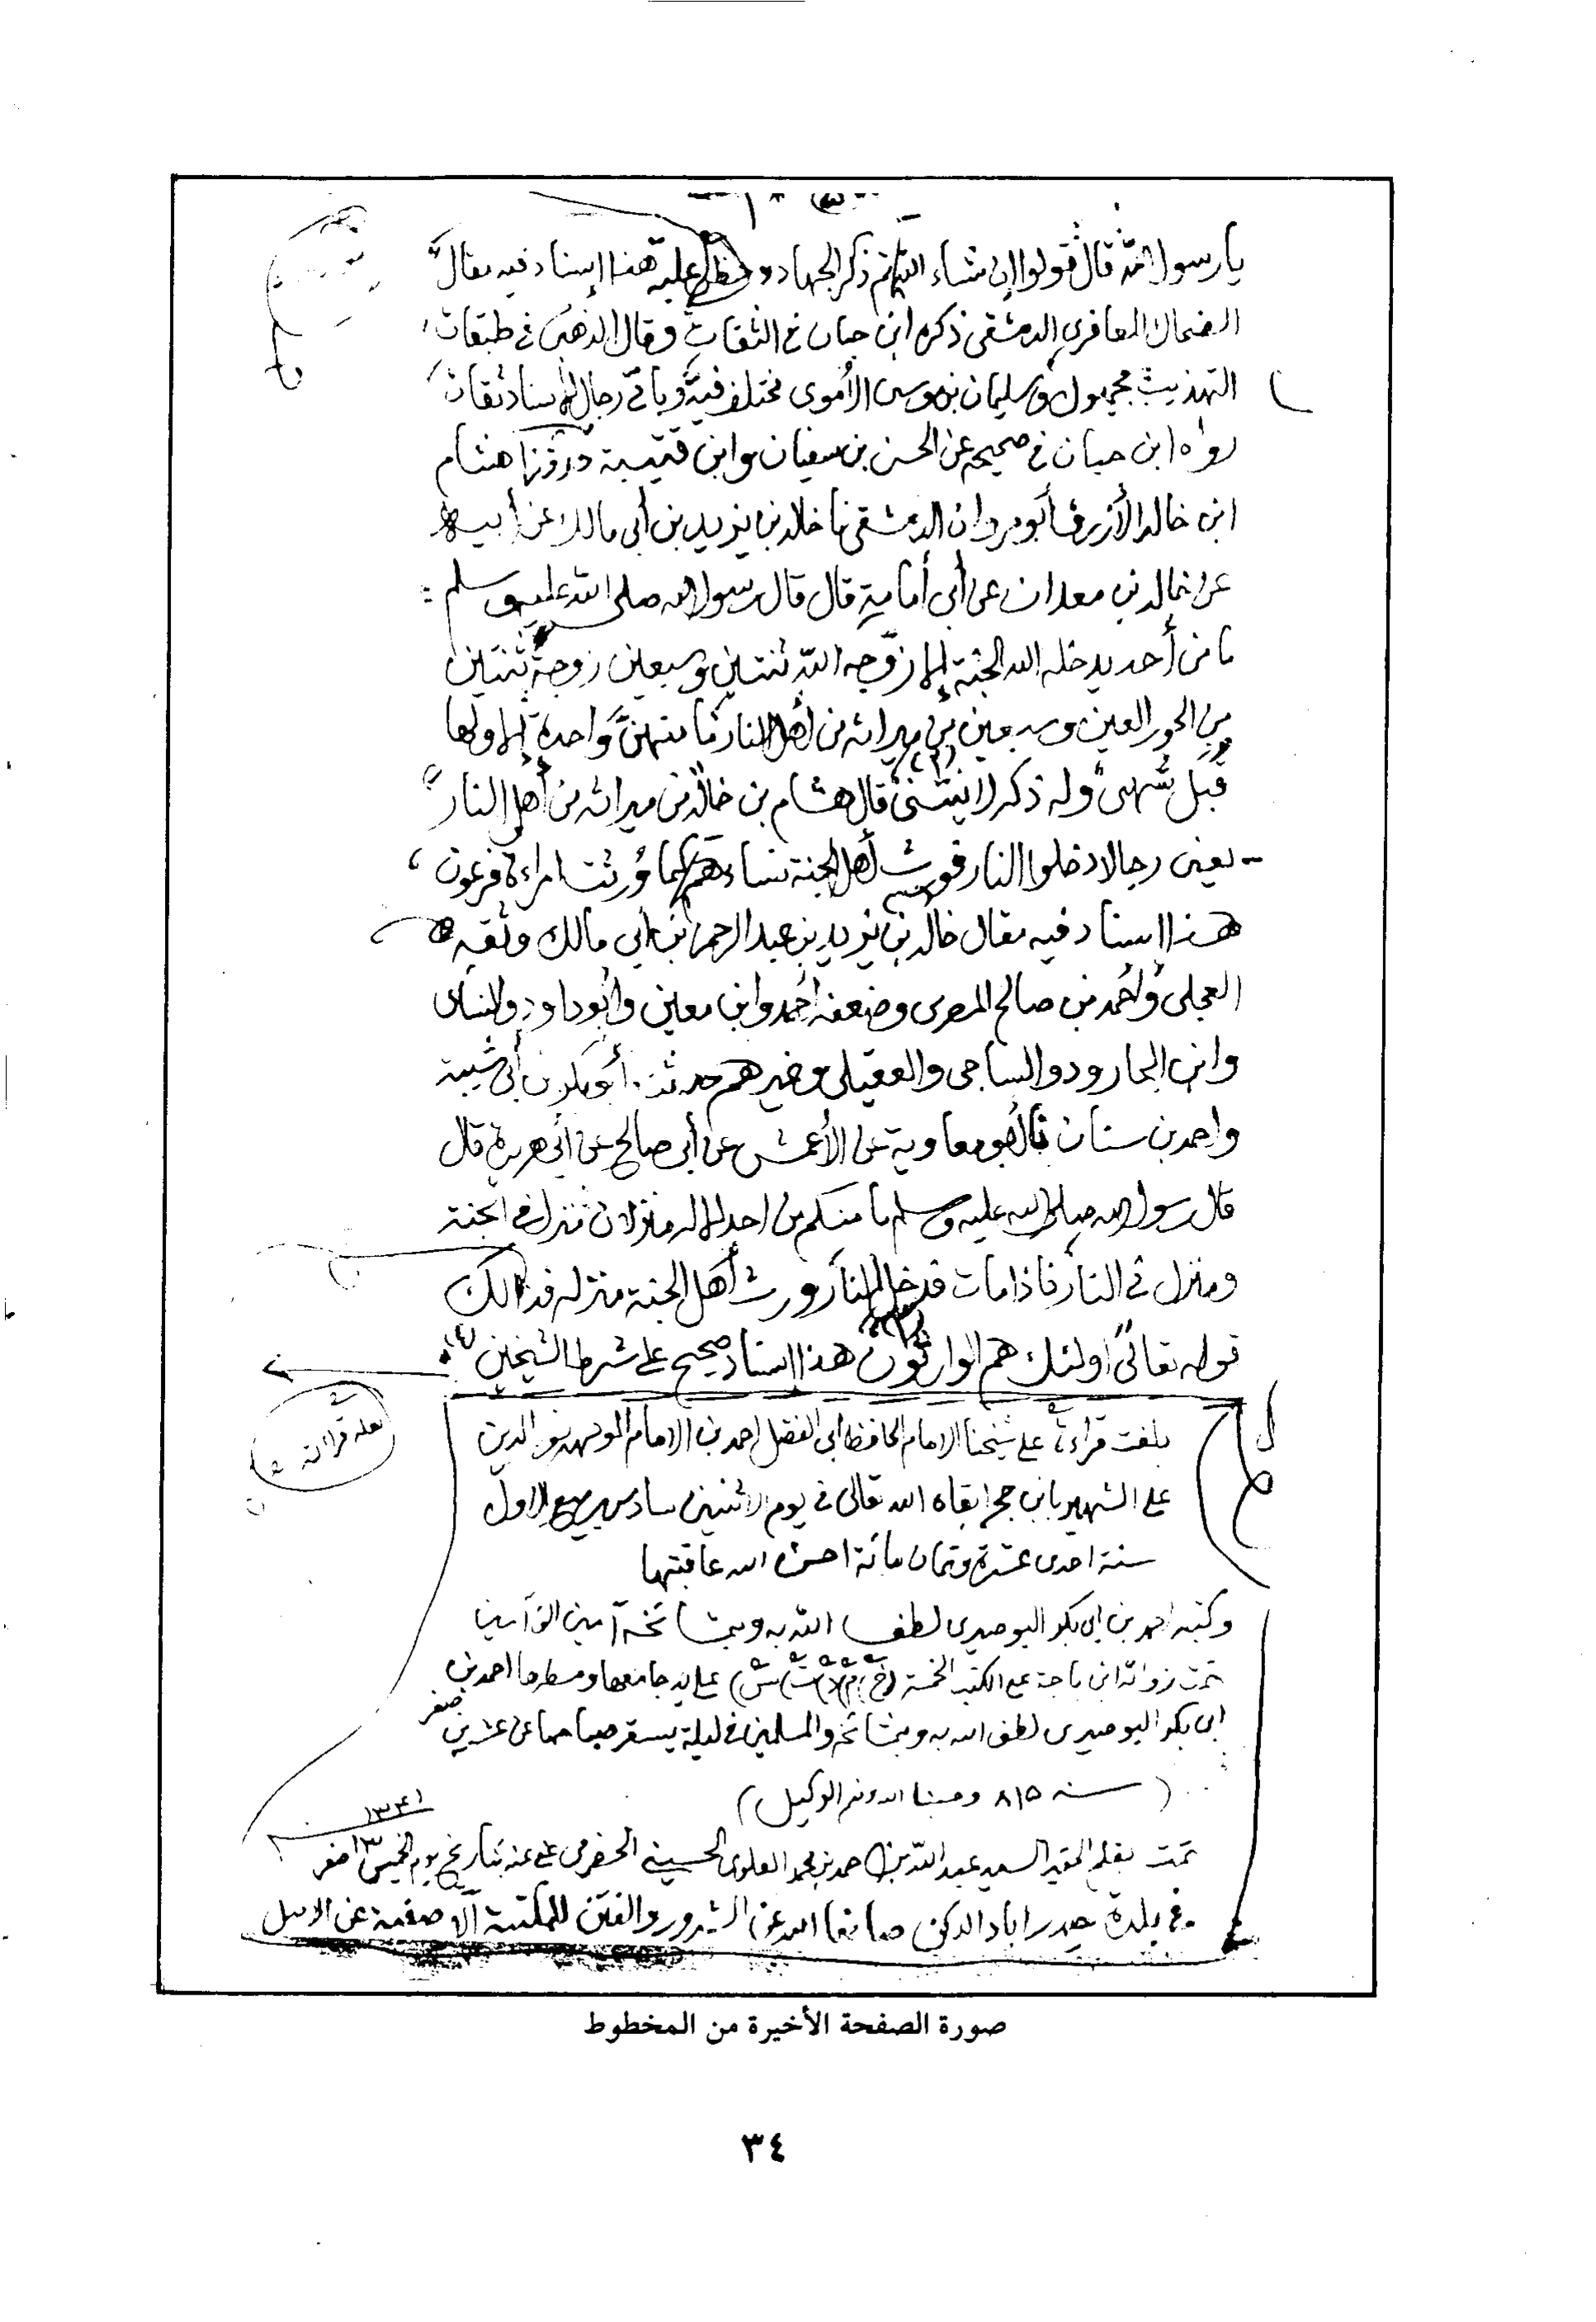 يا رسول الله قال قولوا إن شاء الله ثم ذكر الجهاد وحظ عليه هذا إسناد فيه مقال
الضحاك المعافري الدمشقي ذكره ابن حبان في الثقات وقال الذهبي في طبقات
التهذيب مجهول وسليمان بن موسى الأموي مختلف فيه وباقي رجال الإسناد ثقات
رواه ابن حبان في صحيحه عن الحسن بن سفيان وابن قتيبة هشام
ابن خالد الأزرق أبو مروان الدمشقي نا خالد بن يزيد بن أبي مالك عن أبيه
عن خالد بن معدان عن أبي أمامة قال قال رسول الله صلى الله عليه وسلم
ما من أحد يدخله الله الجنة إلا زوّجه الله ثنتين وسبعين زوجة ثنتين
من الحور العين وسبعين من ميراثه من أهل النار ما منهنّ واحدة إلا ولها
قبل شهي وله ذكر لا ينثني قال هشام بن خالد من ميراثه من أهل النار
يعني رجالا دخلوا النار فورث أهل الجنة نساءهم كما ورثت امراءة فرعون
هذا اسناد فيه مقال خالد بن يزيد بن عبد الرحمن بن أبي مالك وثقه
العجلي وأحمد بن صالح المصري وضعفه أحمد وابن معين وأبو داود والنسائي
وابن الجارود والساجي والعقيلي وغيرهم حدثنا أبو بكر بن أبي شيبة
واحمد بن سنان قالا نا أبو معاوية عن الأعمش عن أبي صالح عن أبي هريرة قال
قال رسول الله صلى الله عليه وسلم ما منكم من احد إلا له منزلان منزل في الجنة
ومنزل في النار فاذا مات فدخل النار ورث أهل الجنة منزله فذالك
قوله تعالى أولئك هم الوارثون هذا اسناد صحيح على شرط الشيخين
بلغت قراءة على شيخنا الامام الحافظ ابي الفضل احمد بن الامام نور الدين
علي الشهير بابن حجر ابقاه الله تعالى في يوم الاثنين سادس ربيع الاول
سنة احدى عشرة وثمان مائة احسن الله عاقبتها
وكتبه احمد بن ابي بكر البوصيري لطف الله به وبمشائخه آمين
تمت زوائد ابن ماجة على الكتب الخمسة (خ) (م) (د) (ت) (س) على يد جامعها ومسطرها احمد بن
ابي بكر البوصيري لطف الله به وبمشائخه والمسلمين في ليلة يسفر صباحها عن عشرين صفر
(سنه ٨١٥ وحسبنا الله ونعم الوكيل)
تمت بقلم الحقير السيد عبد الله بن احمد بن محمد العلوي الحسيني الحضرمي عفي عنه بتاريخ يوم الخميس ١٣ صفر
في بلدة حيدراباد الدكن صانها الله عن الشرور والفتن للمكتبة الآصفية عن الاصل
صورة الصفحة الأخيرة من المخطوط
٣٤